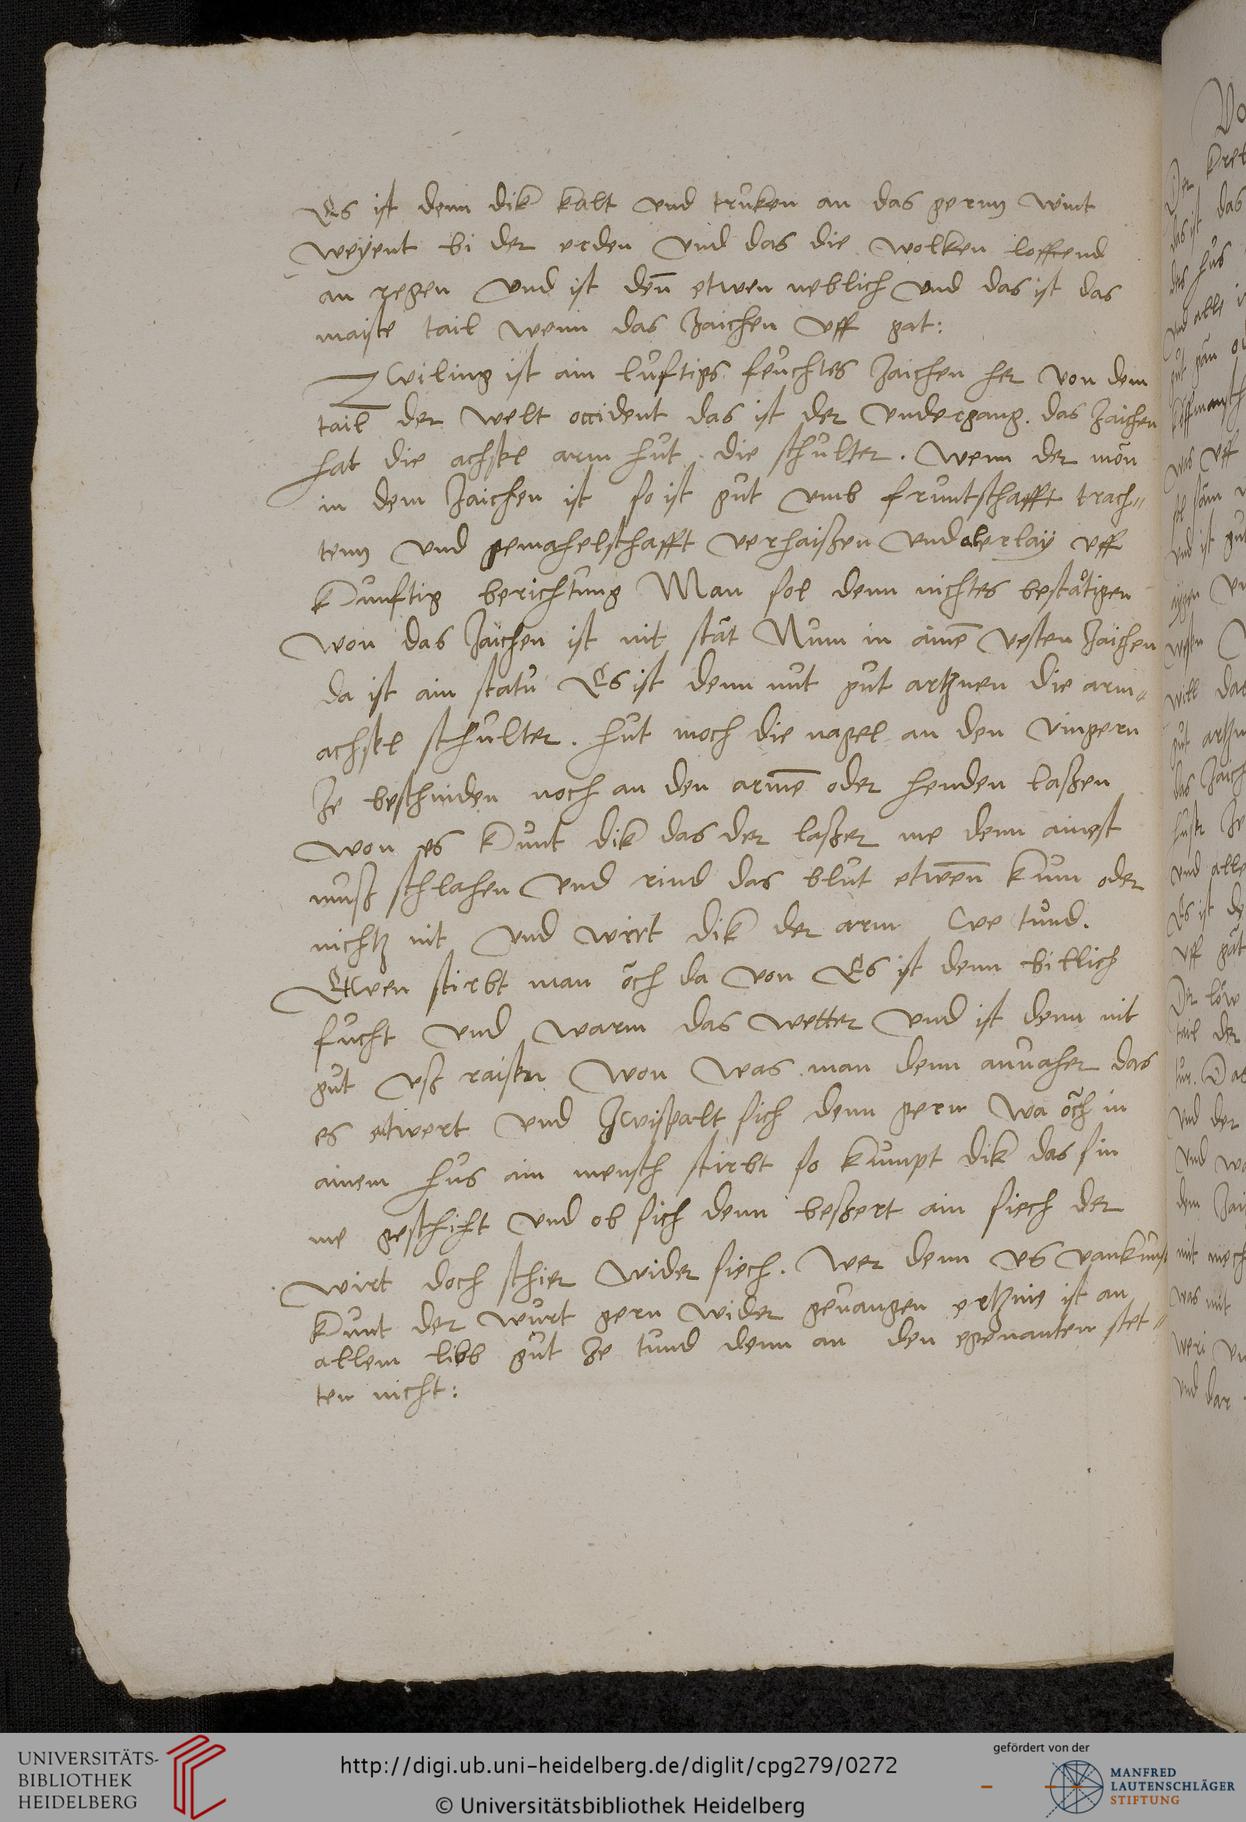 Es ist denn dik kalt vnd truken an das gernn wint
weyent bi der erden vnd das die wolken loffend
an regen vnd ist den̄ etwen neblich vnd das ist das
maiste tail wenn das zaichen vff gat:
Zwiling ist ain luftigs feuchtes zaichen her von dem
tail der welt occident das ist der vndergang. das zaichen
hat die achsel arm hut die schulter. wenn der mon
in dem zaichen ist so ist gut vmb fruntschafft trach„
tenn vnd gemahelschafft verhaißen vnd alerlay vff
kunftig berichtung Man sol denn nichtes beståtigen
won das zaichen ist nit ståt Num in aimē vesten zaichen
da ist ain statu Es ist denn nut gut artznen die arm„
achsel schulter. hut noch die nagel an den vingern
ze beschniden noch an den armē oder henden laßen
won es kunt dik das der laßer me denn ainest
muß schlahen vnd rind das blut etwen̄ kum oder
nichtz nit vnd wirt dik der arm we tund.
Etwen stirbt man och da von Es ist denn billich
fucht vnd warm das wetter vnd ist denn nit
gut vß raisen won was man denn anuahet das
es etwert vnd zwispalt sich denn gern wa och in
ainem hus ain mensch stirbt so kumpt dik das sin
me geschiht vnd ob sich denn beßert ain siech der
wirt doch schier wider siech. wer denn vs vankunst
kunt der wurt gern wider geuangen ertznie ist an
allem libb gut ze tund denn an den egenanten stet„
ten nicht:
UNIVERSITÄTS-
BIBLIOTHEK
HEIDELBERG
http://digi.ub.uni-heidelberg.de/diglit/cpg279/0272
© Universitätsbibliothek Heidelberg
gefördert von der
MANFRED
LAUTENSCHLÄGER
STIFTUNG